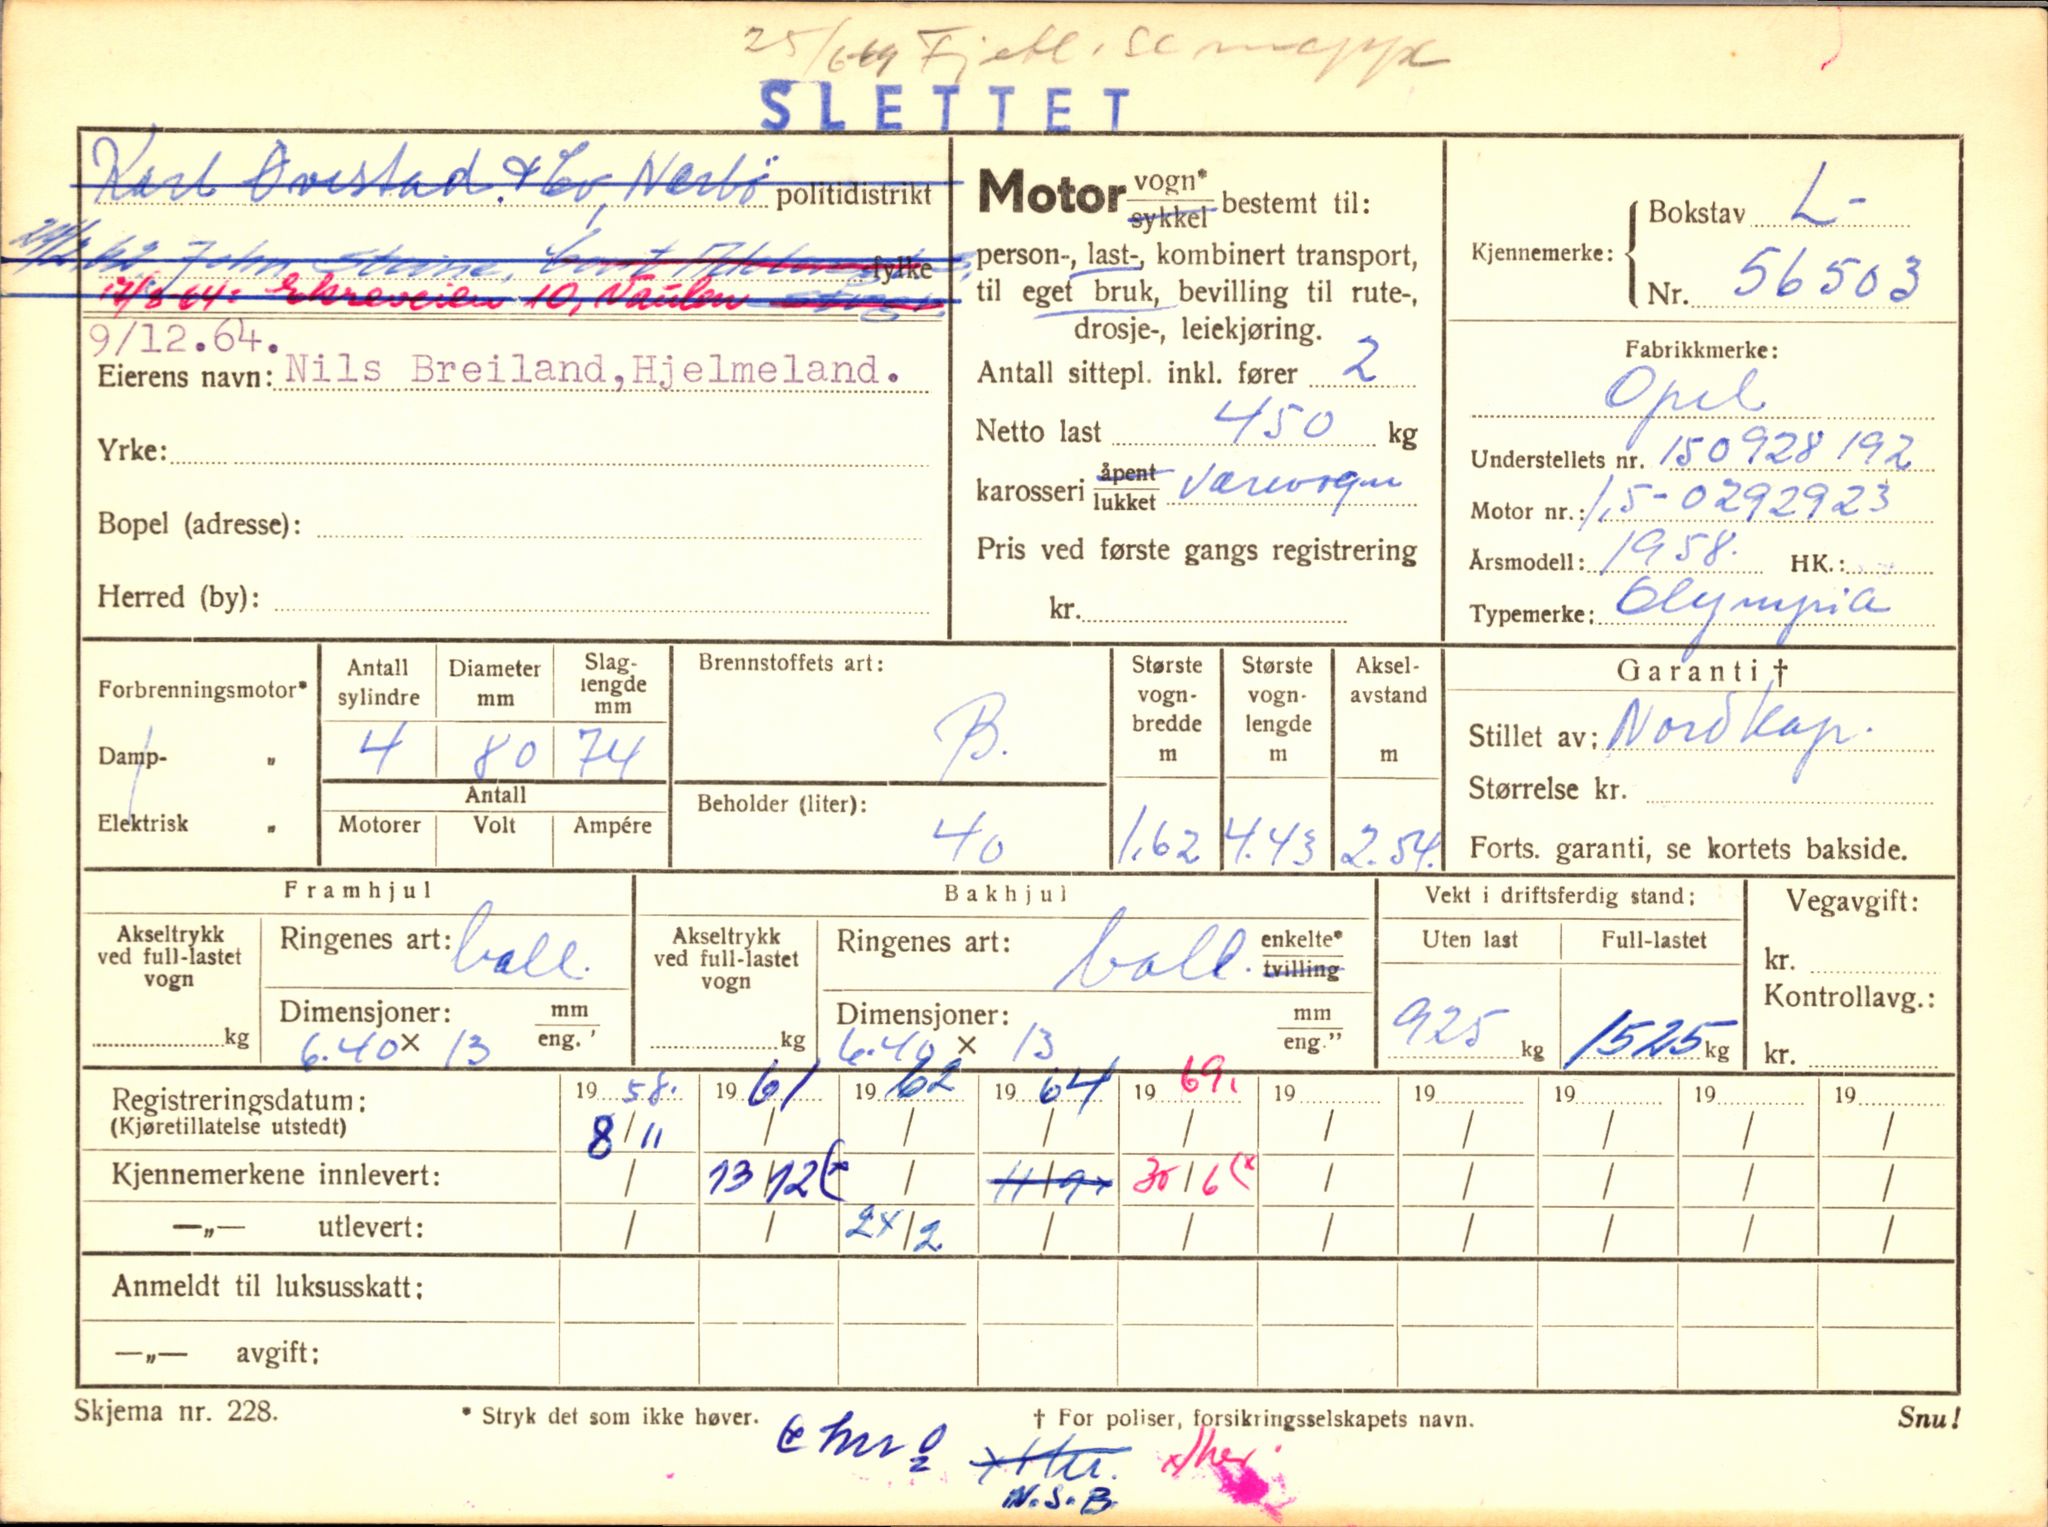 25/6-69 Fjetl. se mappe
SLETTET
Karl Ovestad & Co, Nærbö politidistrikt
24/2.62 John Steine, fylke
17/8-64: Ekraveien 10, Vaulen
9/12.64.
Eierens navn: Nils Breiland, Hjelmeland.
Yrke:
Bopel (adresse):
Herred (by):
Motor vogn*
sykkel bestemt til:
person-, last-, kombinert transport,
til eget bruk, bevilling til rute-,
drosje-, leiekjøring.
Antall sittepl. inkl. fører 2
Netto last 450 kg
karosseri åpent
lukket varevogn
Pris ved første gangs registrering
kr.
Kjennemerke: { Bokstav L-
Nr. 56503
Fabrikkmerke:
Opel
Understellets nr. 150928192
Motor nr.: 1,5-0292923
Årsmodell: 1958. HK.:
Typemerke: Olympia
Forbrenningsmotor*
Damp- „
Elektrisk „
Antall sylindre
Diameter mm
Slag-lengde mm
4 80 74
Antall
Motorer Volt Ampére
Brennstoffets art:
B.
Beholder (liter):
40
Største vogn-bredde m
1,62
Største vogn-lengde m
4.43
Aksel-avstand m
2.54.
Garanti †
Stillet av: Nordkap.
Størrelse kr.
Forts. garanti, se kortets bakside.
Framhjul
Akseltrykk ved full-lastet vogn
kg
Ringenes art: ball.
Dimensjoner: mm
6.40 x 13 eng.'
Bakhjul
Akseltrykk ved full-lastet vogn
kg
Ringenes art: ball. enkelte*
tvilling
Dimensjoner: mm
6.40 x 13 eng."
Vekt i driftsferdig stand:
Uten last Full-lastet
925 kg 1525 kg
Vegavgift:
kr.
Kontrollavg.:
kr.
Registreringsdatum: 19 58. 19 61 19 62 19 64 19 69. 19 19 19 19 19
(Kjøretillatelse utstedt) 8/11 / / / / / / / / /
Kjennemerkene innlevert: / 13/12 (x / 11/9x 30/6 (x / / / / /
—„— utlevert: / / 24/2 / / / / / / /
Anmeldt til luksusskatt:
—„— avgift:
Skjema nr. 228.
* Stryk det som ikke høver.
† For poliser, forsikringsselskapets navn.
Snu!
N.S.B.
x/her.